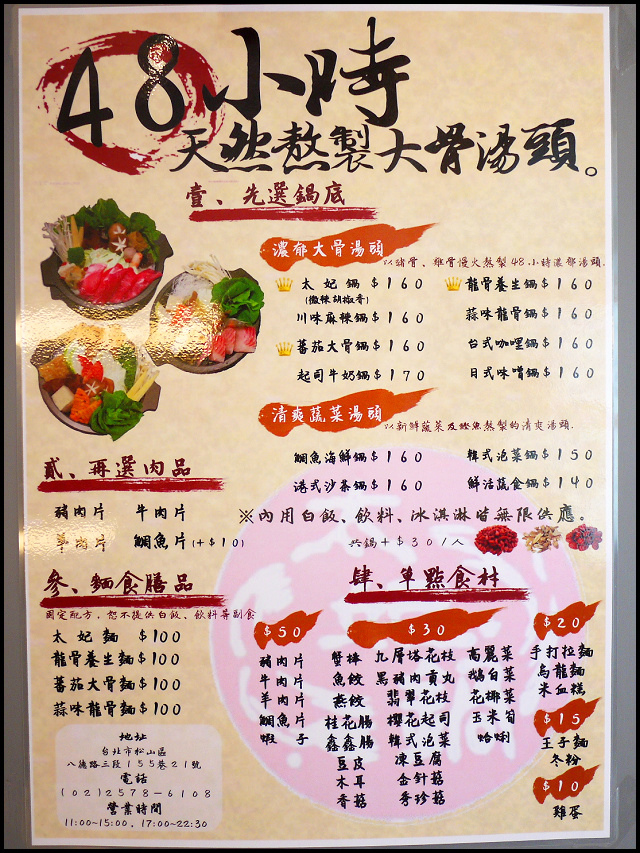 48小時
天然熬製大骨湯頭。
壹、先選鍋底
濃郁大骨湯頭
以豬骨、雞骨慢火熬製48小時濃郁湯頭.
太妃鍋$160
(微辣胡椒香)
川味麻辣鍋$160
蕃茄大骨鍋$160
起司牛奶鍋$170
龍骨養生鍋$160
蒜味龍骨鍋$160
台式咖哩鍋$160
日式味噌鍋$160
清爽蔬菜湯頭
以新鮮蔬菜及鰹魚熬製的清爽湯頭.
鯛魚海鮮鍋$160
港式沙茶鍋$160
韓式泡菜鍋$150
鮮活蔬食鍋$140
※內用白飯、飲料、冰淇淋皆無限供應。
共鍋+$30/人
貳、再選肉品
豬肉片 牛肉片
羊肉片 鯛魚片(+$10)
參、麵食膳品
固定配方，恕不提供白飯、飲料等副食
太妃麵 $100
龍骨養生麵$100
蕃茄大骨麵$100
蒜味龍骨麵$100
地址
台北市松山區
八德路三段155巷21號
電話
(02)2578-6108
營業時間
11:00~15:00，17:00~22:30
肆、單點食材
$50
豬肉片
牛肉片
羊肉片
鯛魚片
蝦子
$30
蟹棒 九層塔花枝 高麗菜
魚餃 黑豬肉貢丸 鵝白菜
燕餃 翡翠花枝 花椰菜
桂花腸 櫻花起司 玉米筍
鑫鑫腸 韓式泡菜 蛤蜊
豆皮 凍豆腐
木耳 金針菇
香菇 秀珍菇
$20
手打拉麵
烏龍麵
米血糕
$15
王子麵
冬粉
$10
雞蛋